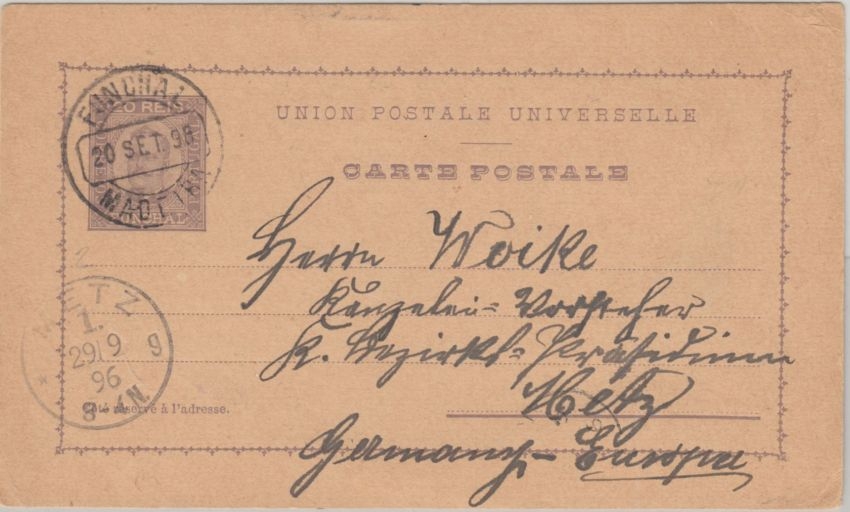 FUNCHAL
20 SET. 96
MADEIRA
20 REIS
FUNCHAL
UNION POSTALE UNIVERSELLE
CARTE POSTALE
Herrn Woike
Kanzelei-Vorsteher
K. Bezirks-Präsidium
Metz
Germany-Europa
METZ
1.
29/9
96
8-9N.
g
Côté réservé à l'adresse.